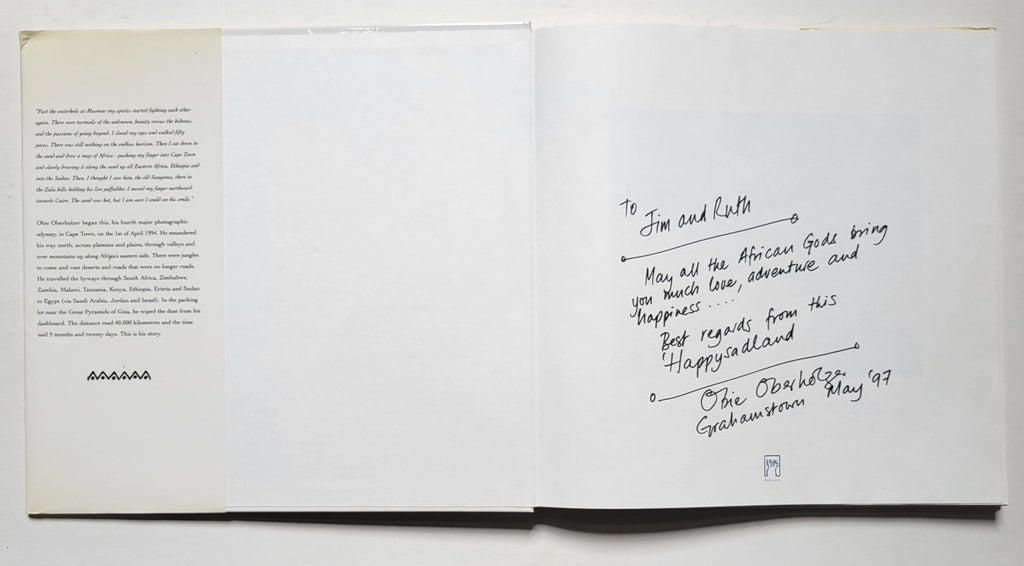 "Past the waterhole at Musmar my spirits started fighting each other
again. There were turmoils of the unknown, beauty versus the hideous,
and the passions of going beyond. I closed my eyes and walked fifty
paces. There was still nothing on the endless horizon. Then I sat down in
the sand and drew a map of Africa - pushing my finger into Cape Town
and slowly drawing it along the sand up all Eastern Africa, Ethiopia and
into the Sudan. Then, I thought I saw him, the old Sangoma, there in
the Zulu hills holding his live puffadder. I moved my finger northward
towards Cairo. The sand was hot, but I am sure I could see his smile."
Obie Oberholzer began this, his fourth major photographic
odyssey, in Cape Town, on the 1st of April 1994. He meandered
his way north, across plateaus and plains, through valleys and
over mountains up along Africa's eastern side. There were jungles
to come and vast deserts and roads that were no longer roads.
He travelled the byways through South Africa, Zimbabwe,
Zambia, Malawi, Tanzania, Kenya, Ethiopia, Eritrea and Sudan
to Egypt (via Saudi Arabia, Jordan and Israel). In the parking
lot near the Great Pyramids of Giza, he wiped the dust from his
dashboard. The distance read 40,000 kilometres and the time
said 9 months and twenty days. This is his story.
To
Jim and Ruth
May all the African Gods bring
you much love, adventure and
happiness ....
Best regards from this
'Happysadland
Obie Oberholzer
Grahamstown May '97